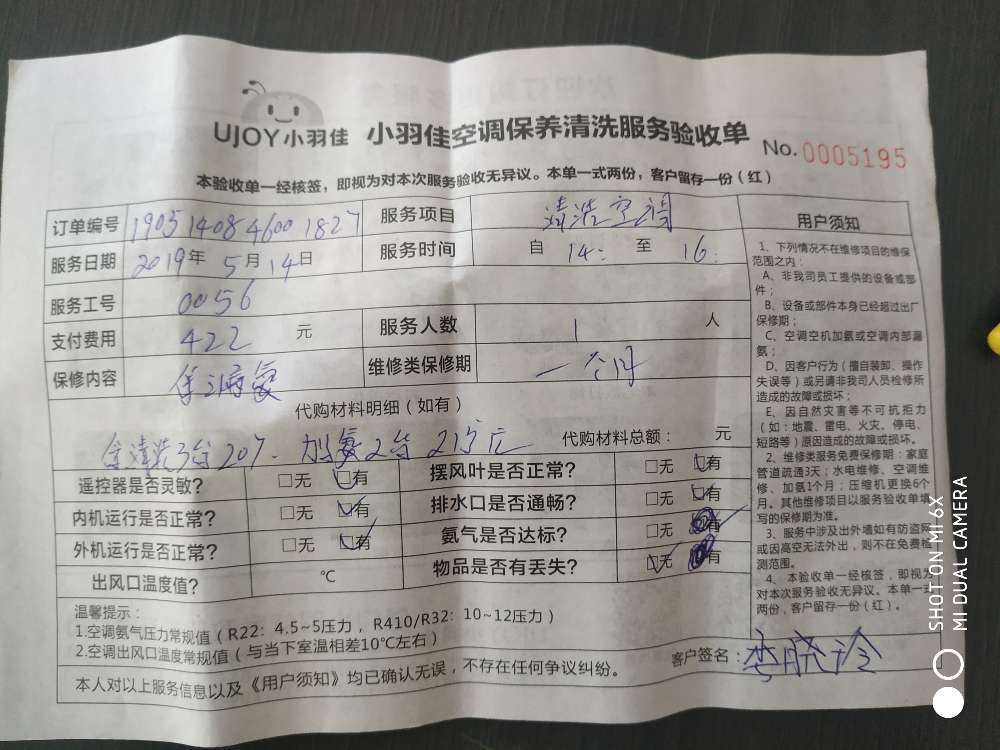 UJOY小羽佳 小羽佳空调保养清洗服务验收单
No. 0005195
本验收单一经核签，即视为对本次服务验收无异议。本单一式两份，客户留存一份（红）
订单编号 190514084600 1827 服务项目 清洗空调
服务日期 2019年 5月14日 服务时间 自 14: 至 16:
服务工号 0056
支付费用 422 元 服务人数 1 人
保修内容 维修类保修期 一个月
代购材料明细（如有）
清洗3台207. 加氨2台215元 代购材料总额： 元
遥控器是否灵敏? □无 □有 摆风叶是否正常? □无 □有
内机运行是否正常? □无 □有 排水口是否通畅? □无 □有
外机运行是否正常? □无 □有 氨气是否达标? □无 有
出风口温度值? ℃ 物品是否有丢失? □无 有
温馨提示：
1.空调氨气压力常规值（R22：4.5~5压力，R410/R32：10~12压力）
2.空调出风口温度常规值（与当下室温相差10℃左右）
客户签名：李晓玲
本人对以上服务信息以及《用户须知》均已确认无误，不存在任何争议纠纷。
用户须知
1、下列情况不在维修项目的维保
范围之内：
A、非我司员工提供的设备或部
件；
B、设备或部件本身已经超过出厂
保修期；
C、空调空机加氨或空调内部漏
氨；
D、因客户行为（擅自装卸、操作
失误等）或另请非我司人员检修所
造成的故障或损坏；
E、因自然灾害等不可抗拒力
（如：地震、雷电、火灾、停电、
短路等）原因造成的故障或损坏。
2、维修类服务免费保修期：家庭
管道疏通3天；水电维修、空调维
修、加氨1个月；压缩机更换6个
月。其他维修项目以服务验收单填
写的保修期为准。
3、服务中涉及出外墙如有防盗网
或因高空无法外出，则不在免费检
测范围。
4、本验收单一经核签，即视为
对本次服务验收无异议。本单一式
两份，客户留存一份（红）。
SHOT ON MI 6X
MI DUAL CAMERA